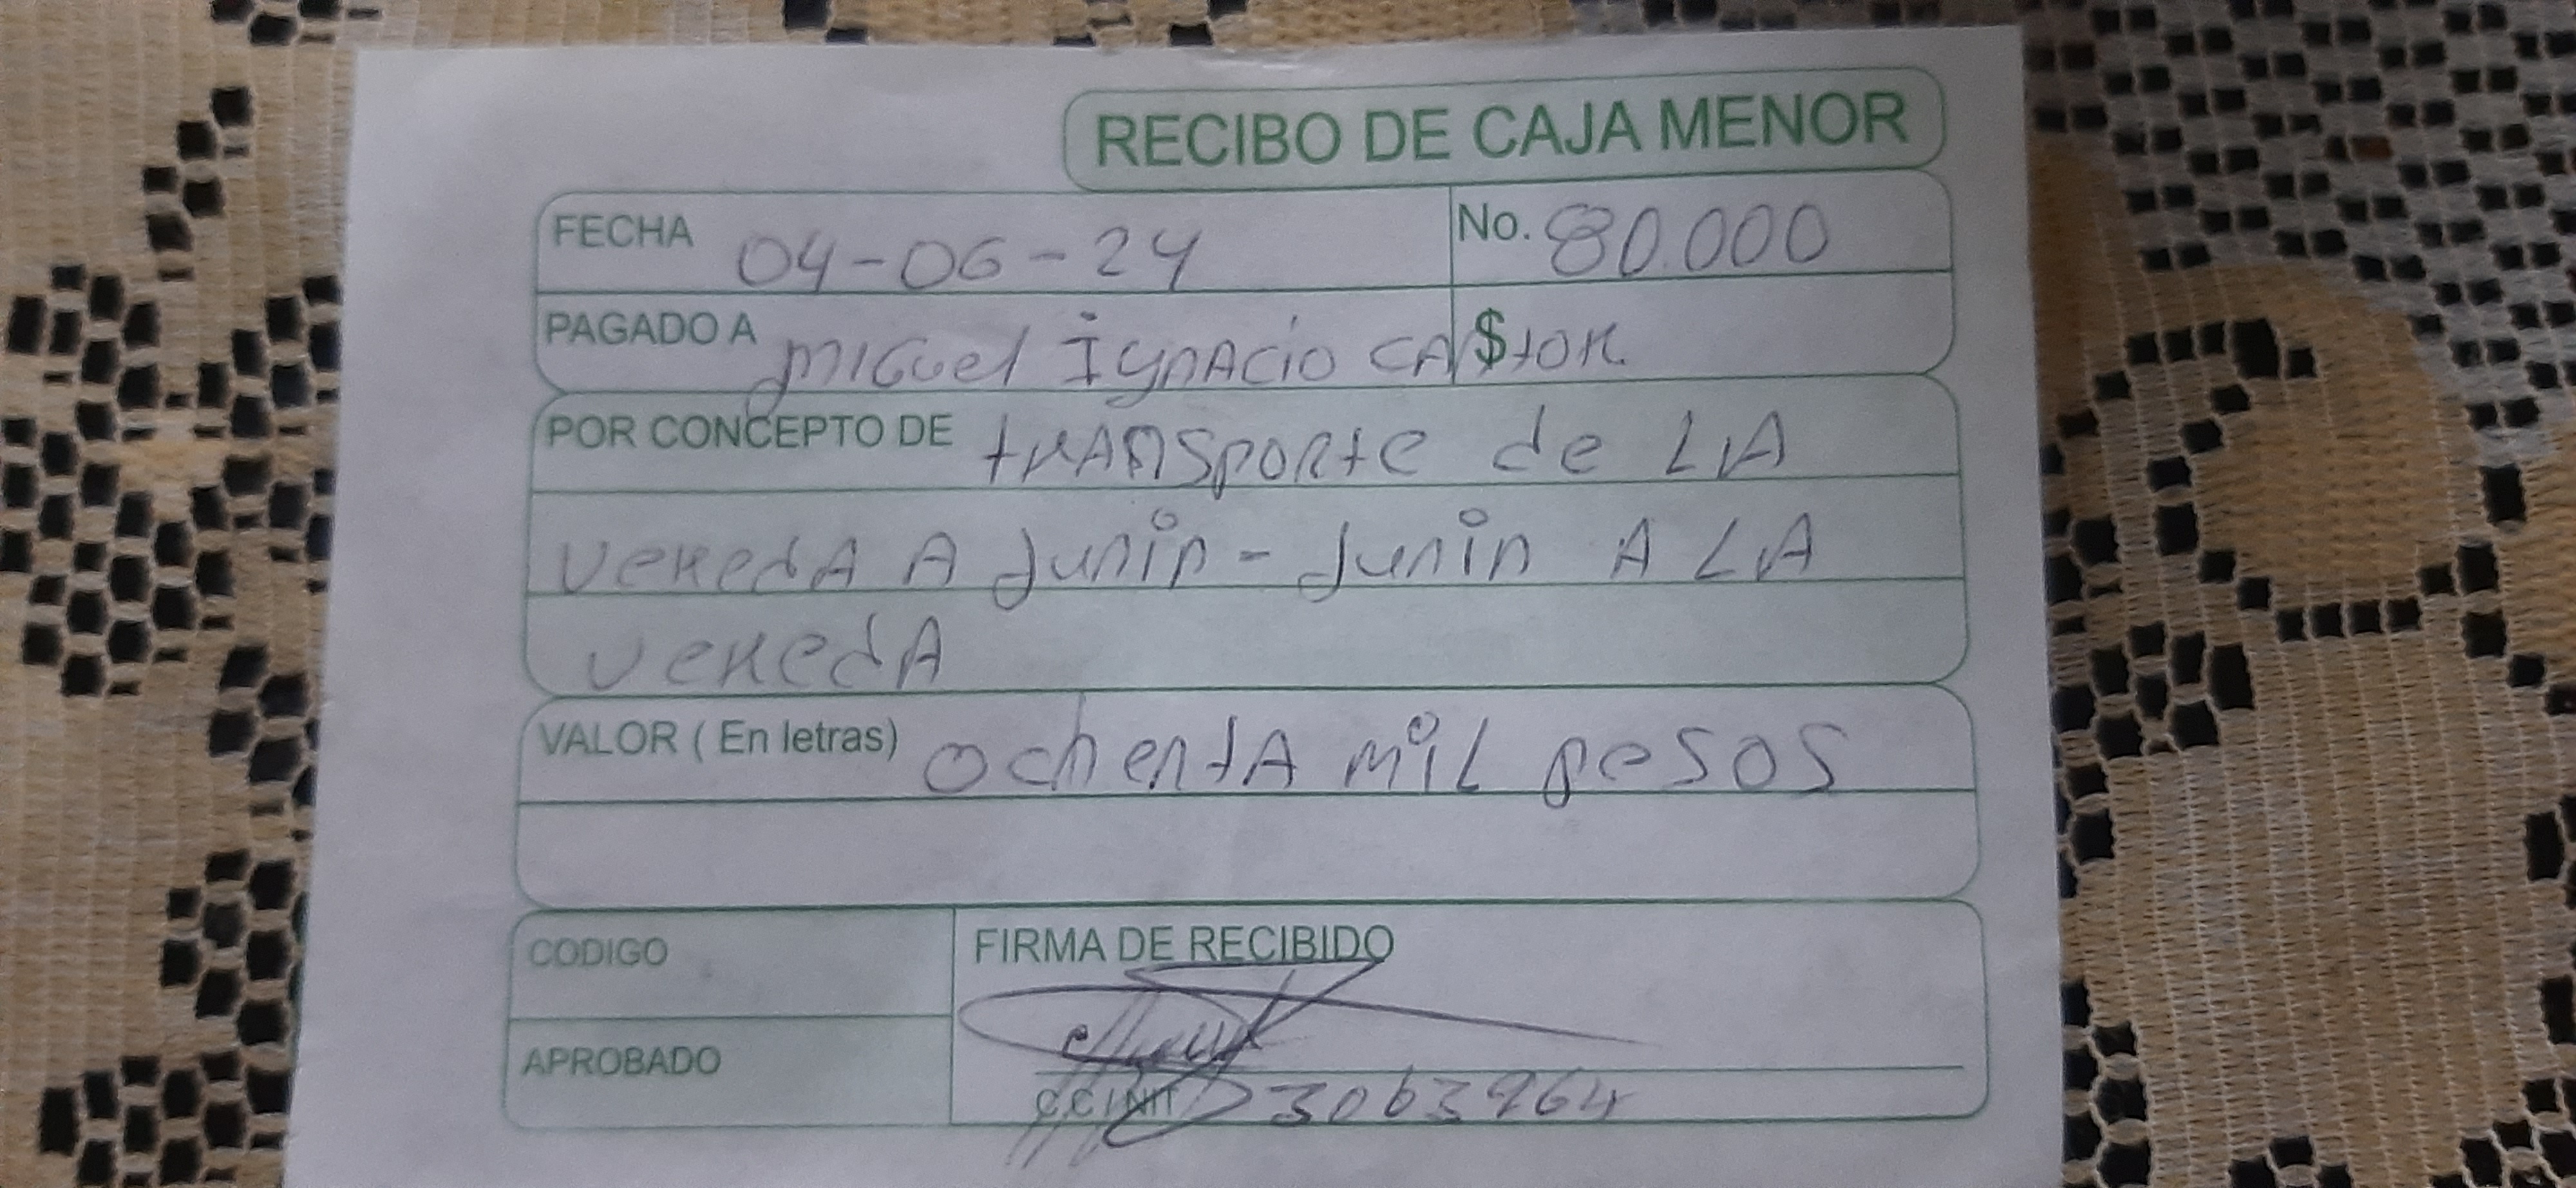 RECIBO DE CAJA MENOR
FECHA 04-06-24 No. 80.000
PAGADO A Miguel Ignacio CA$toR
POR CONCEPTO DE tRANSpoRte de LA
VeRedA A Junin - Junin A LA
VeRedA
VALOR ( En letras) ochentA miL pesos
CODIGO FIRMA DE RECIBIDO
APROBADO
C.C / NIT 3063964